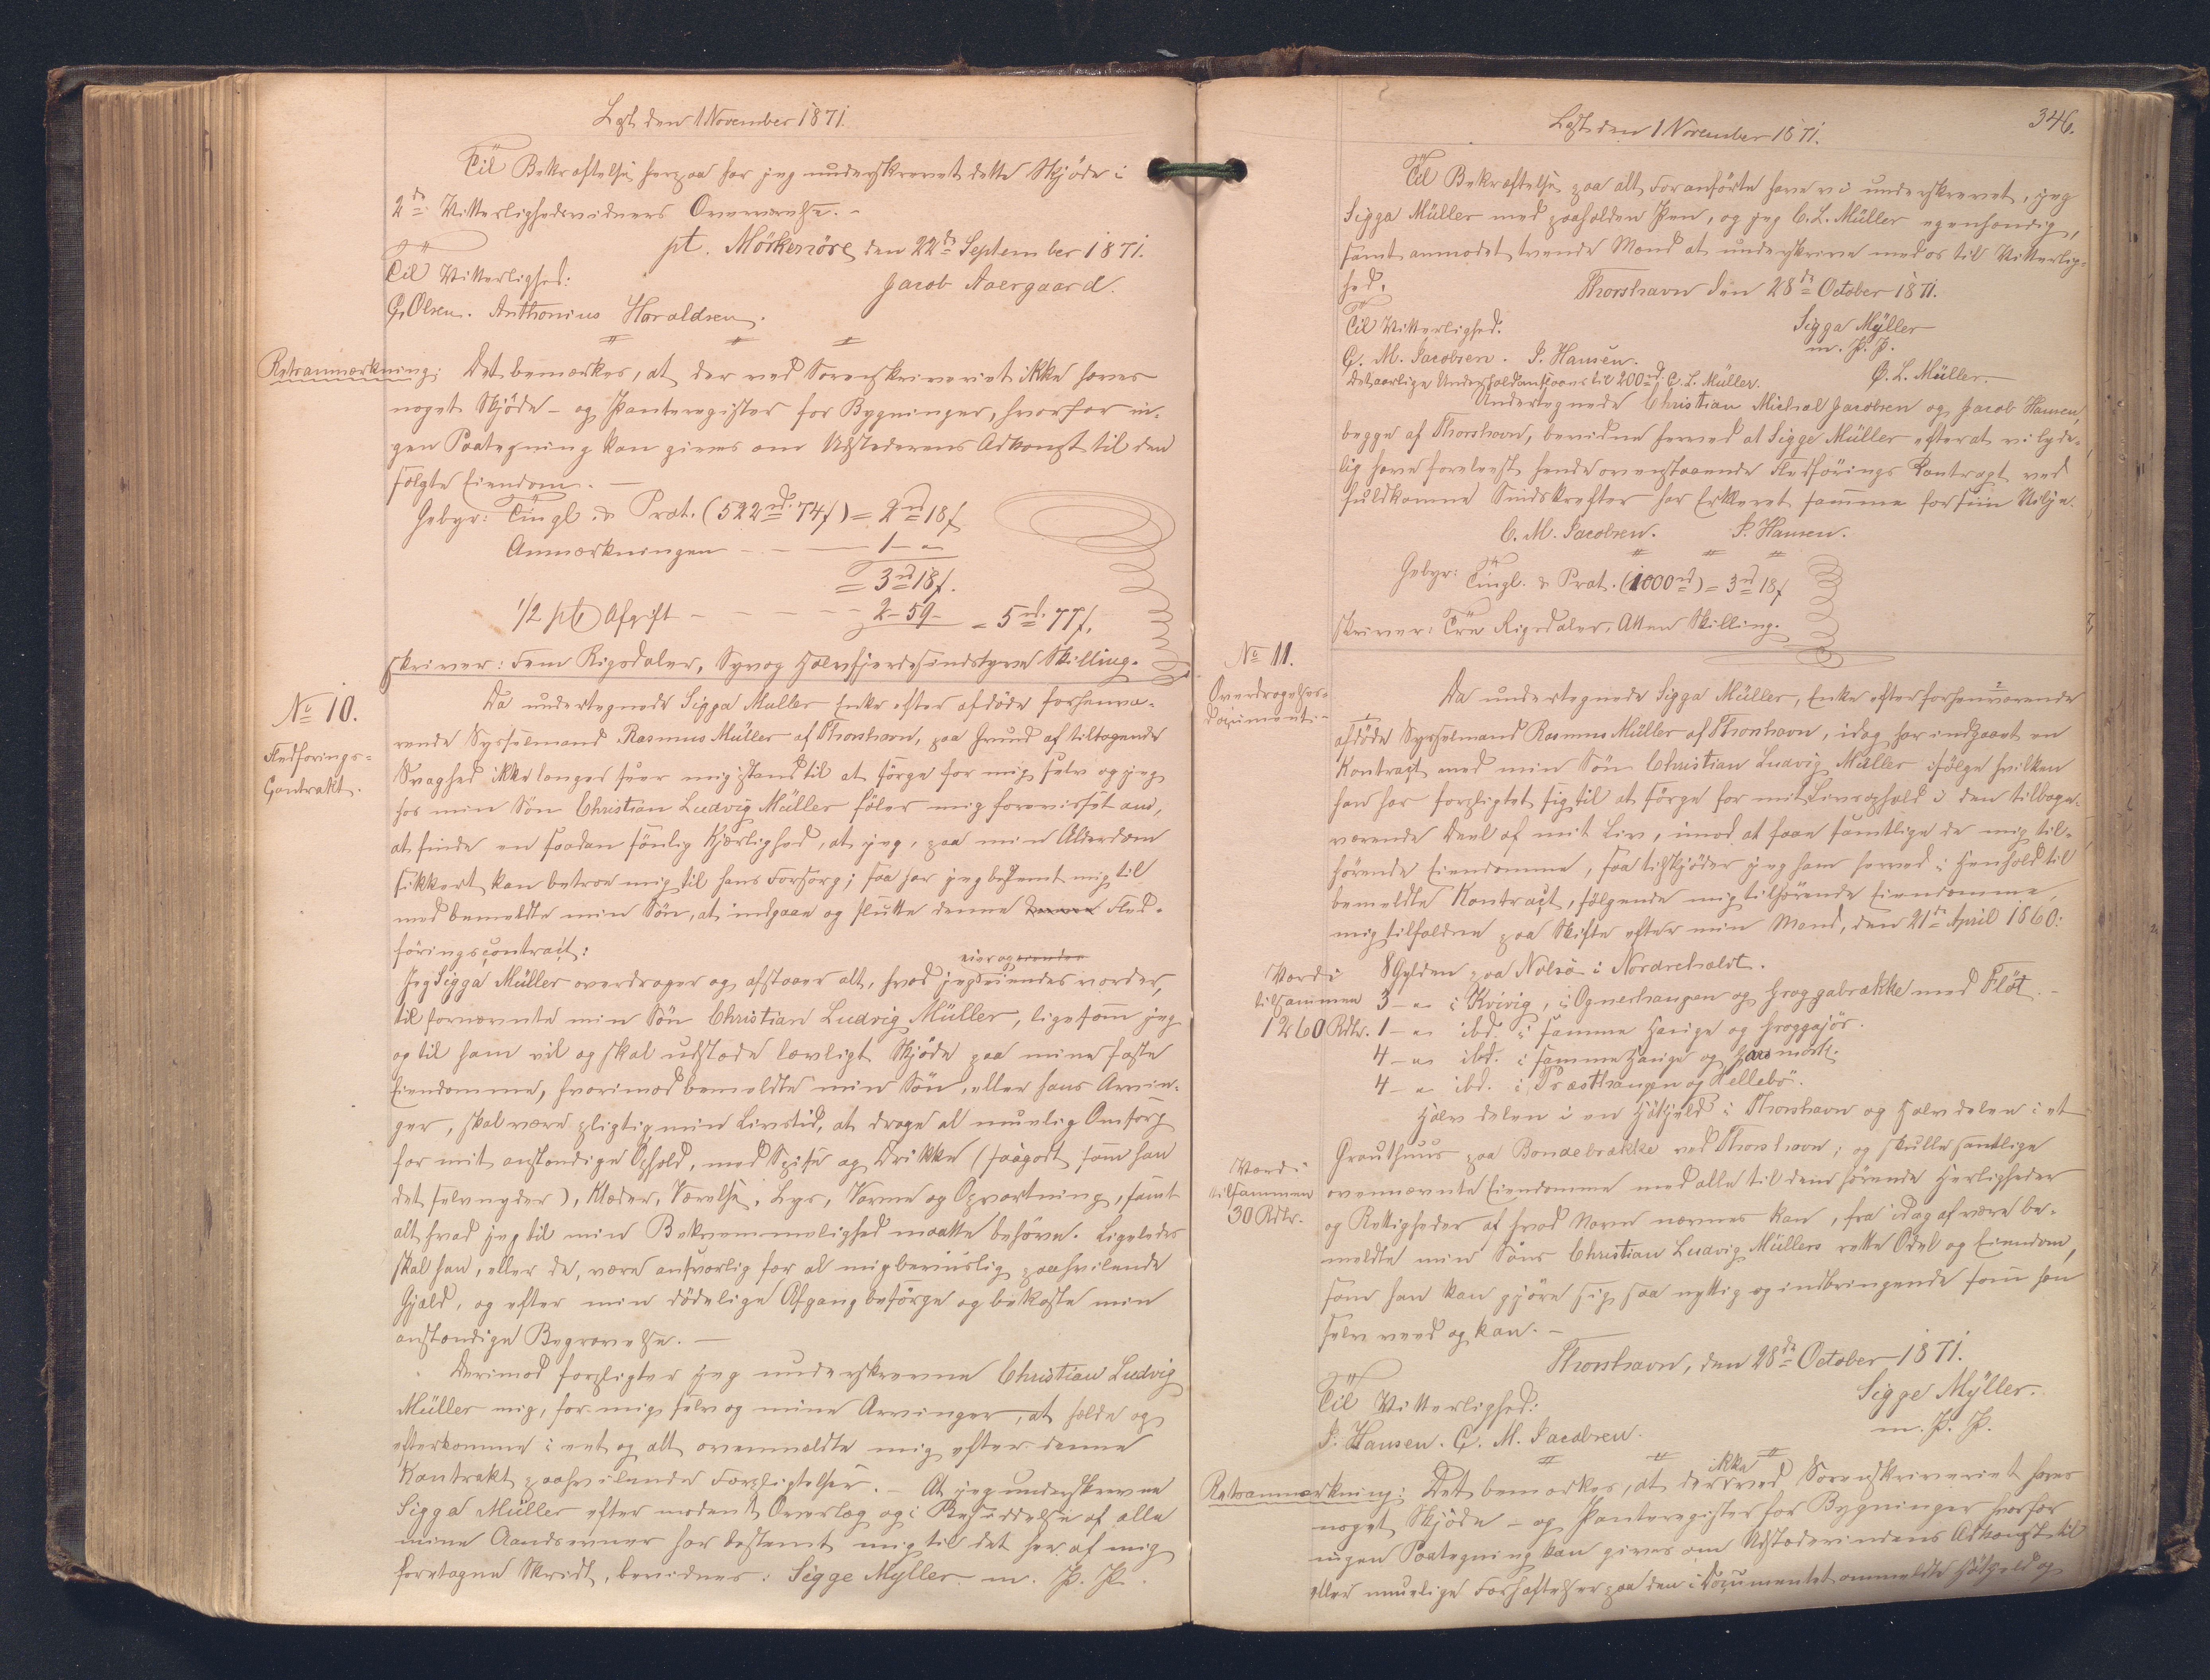 Læst den 1 November 1871.
Til Bekræftelse herpaa har jeg underskrevet dette Skjöde i
2de Vitterlighedsvidners Overværelse. -
pt. Mörkenöre, den 22de September 1871.
Til Vitterlighed:
Jacob Aaergaard.
G. Olsen. Anthonius Haraldsen.
Retsanmærkning: Det bemærkes, at der ved Sorenskriveriet ikke haves
noget Skjöde- og Panteregister for Bygninger, hvorfor in-
gen Paategning kan gives om Udstederens Adkomst til den
solgte Eiendom. -
Gebyr: Tingl. & Prot. (522rd 74s) = 2rd 18s
Anmærkningen - - - 1 - "
= 3rd 18s.
1/2 pCt Afgift - - - - 2 - 59 - = 5rd 77s.
skriver: Fem Rigsdaler, Syv og Halvfjerdesindstyve Skilling.
No 10.
Fledförings-
Contrakt.
Da undertegnede Sigga Müller Enke efter afdöde forhenvæ-
rende Sysselmand Rasmus Müller af Thorshavn, paa Grund af tiltagende
Svaghed ikke længer seer mig istand til at sörge for mig selv og jeg
hos min Sön Christian Ludvig Müller föler mig forvisset om,
at finde en saadan sönlig Kjærlighed, at jeg, paa min Alderdom
sikkert kan betroe mig til hans Forsorg; saa har jeg bestemt mig til
med bemeldte min Sön, at indgaae og slutte denne Fled-
föringscontract:
eier og
Jeg Sigga Müller overdrager og afstaaer alt, hvad jeg eiendes vorder,
til fornævnte min Sön Christian Ludvig Müller, ligesom jeg
og til ham vil og skal udstæde lovligt Skjöde paa mine faste
Eiendomme, hvorimod bemeldte min Sön, eller hans Arvin-
ger, skal være pligtig min Livstid, at drage al muelig Omsorg
for mit anstændige Ophold, med Spise og Drikke (saagodt som han
det selv nyder), Klæder, Værelse, Lys, Varme og Opvartning, samt
alt hvad jeg til min Bekvemmelighed maatte behöve. Ligeledes
skal han, eller de, være ansvarlig for al mig beviislig paahvilende
Gjæld, og efter min dödelige Afgang besörge og bekoste min
anstændige Begravelse. -
Derimod forpligter jeg underskrevne Christian Ludvig
Müller mig, for mig selv og mine Arvinger, at holde og
efterkomme i eet og alt ovenmeldte mig efter denne
Kontrakt paahvilende Forpligtelser. - At jeg underskrevne
Sigga Müller efter modent Overlæg og i Besiddelse af alle
mine Aandsevner har bestemt mig til det her af mig
foretagne Skridt, bevidnes: Sigge Myller m. P. P.
Læst den 1 November 1871.
346.
Til Bekræftelse paa alt Foranförte have vi underskrevet, jeg
Sigga Müller med paaholden Pen, og jeg C. L. Müller egenhændig,
samt anmodet tvende Mænd at underskrive med os til Vitterlig-
hed.
Thorshavn den 28de October 1871.
Til Vitterlighed:
Sigga Myller
m. P. P.
C. M. Jacobsen. J. Hansen.
C. L. Müller.
Det aarlige Underhold ansaaes til 200rd C. L. Müller.
Undertegnede Christian Michal Jacobsen og Jacob Hansen,
begge af Thorshavn, bevidne herved at Sigge Müller efterat vi lyde-
lig have forelæst hende ovenstaaende Fledförings Kontragt ved
fuldkomne Sindskrefter har Erkleret samme for sin Vilje.
C. M. Jacobsen. J. Hansen.
Gebyr: Tingl. & Prot. (1000rd) = 3rd 18s
skriver: Tre Rigsdaler, Atten Skilling.
No 11.
Overdragelses-
document.
Da undertegnede Sigga Müller, Enke efter forhenværende
afdöde Sysselmand Rasmus Müller af Thorshavn, idag har indgaaet en
Kontragt med min Sön Christian Ludvig Müller ifölge hvilken
han har forpligtet sig til at sörge for mit Livsophold i den tilbage-
værende Deel af mit Liv, imod at faae samtlige de mig til-
hörende Eiendomme, saa tilskjöder jeg ham herved i Henhold til
bemeldte Kontragt, fölgende mig tilhörende Eiendomme,
mig tilfaldne paa Skifte efter min Mand, den 21de April 1860:
Værdi
tilsammen
1260 Rdlr.
8 Gylden paa Nolsö i Nordrehalvt.
3 - " i Kvivig, i Ognerhaugen og Groggabrække med Flöt. -
1 - " ibd. i samme Hauge og Groggajör.
4 - " ibd. i samme Hauge og Husmörk.
4 - " ibd. i Præsthaugen og Hellebö.
Værdi
tilsammen
30 Rdlr.
Halvdelen i en Hötjeld i Thorshavn og Halvdelen i et
Grauthuus paa Bondebrække ved Thorshavn; og skulle samtlige
ovennævnte Eiendomme med alle til dem hörende Herligheder
og Rettigheder af hvad Navn nævnes kan, fra idag af være be-
meldte min Söns Christian Ludvig Müllers rette Odel og Eiendom,
som han kan gjöre sig saa nyttig og indbringende som han
selv veed og kan. -
Thorshavn, den 28de October 1871.
Til Vitterlighed:
Sigge Myller.
m. P. P.
J. Hansen. C. M. Jacobsen.
ikke
Retsanmærkning: Det bemærkes, at der ved Sorenskriveriet haves
noget Skjöde- og Panteregister for Bygninger hvorfor
ingen Paategning kan gives om Udstederindens Adkomst til
eller muelige Forhæftelser paa den i Documentet ommeldte Hötjeld og